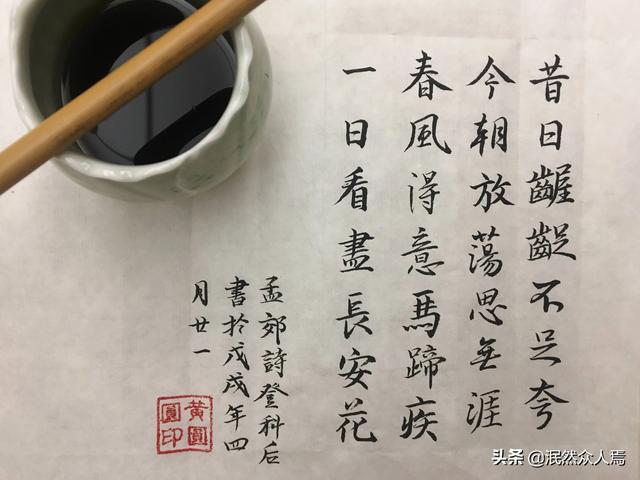 昔日齷齪不足夸
今朝放蕩思無涯
春風得意馬蹄疾
一日看盡長安花
孟郊詩登科后
書於戊戌年四
月廿一
黃圓
圓印
头条 @泯然众人焉